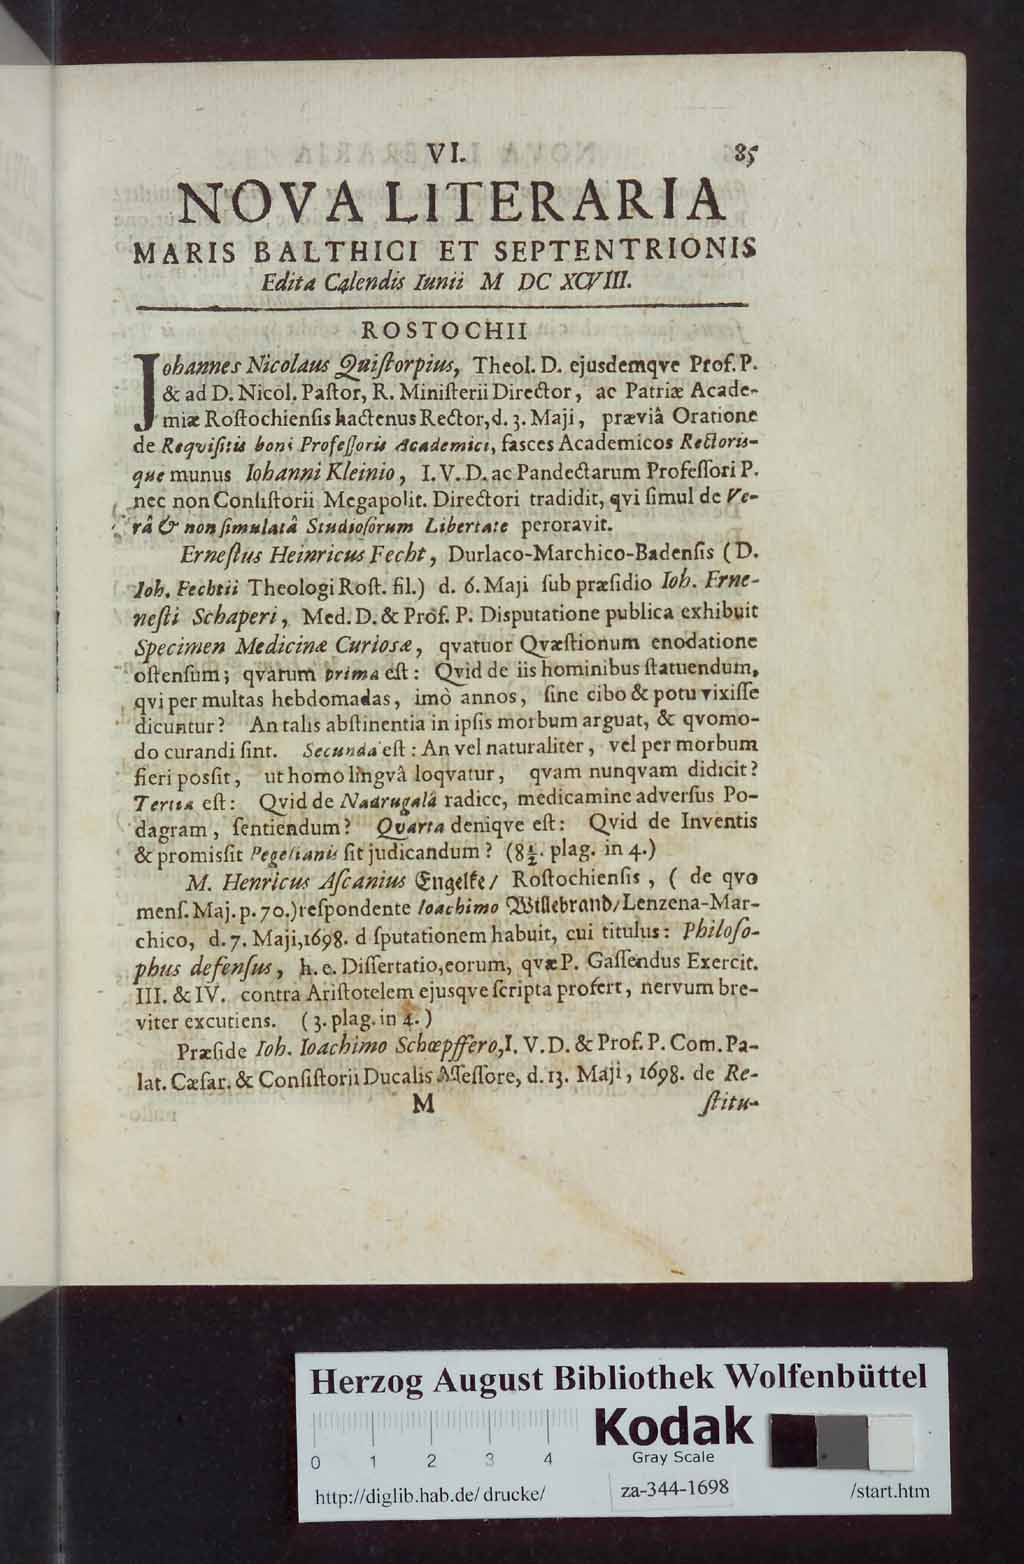 VI. 85
NOVA LITERARIA
MARIS BALTHICI ET SEPTENTRIONIS
Edita Calendis Iunii M DC XCVIII.
ROSTOCHII
Johannes Nicolaus Quiſtorpius, Theol. D. ejusdemqve Prof. P.
& ad D. Nicol. Paſtor, R. Miniſterii Director, ac Patriæ Acade-
miæ Roſtochienſis hactenus Rector, d. 3. Maji, præviâ Oratione
de Reqviſitis boni Profeſſoris Academici, faſces Academicos Rectoris-
que munus Iohanni Kleinio, I. V. D. ac Pandectarum Profeſſori P.
nec non Conſiſtorii Megapolit. Directori tradidit, qvi ſimul de Ve-
râ & non ſimulatâ Studioſorum Libertate peroravit.
Erneſtus Heinricus Fecht, Durlaco-Marchico-Badenſis (D.
Ioh. Fechtii Theologi Roſt. fil.) d. 6. Maji ſub præſidio Ioh. Erne-
neſti Schaperi, Med. D. & Prof. P. Disputatione publica exhibuit
Specimen Medicinæ Curioſæ, qvatuor Qvæſtionum enodatione
oſtenſum; qvarum prima eſt: Qvid de iis hominibus ſtatuendum,
qvi per multas hebdomadas, imò annos, ſine cibo & potu vixiſſe
dicuntur? An talis abſtinentia in ipſis morbum arguat, & qvomo-
do curandi ſint. Secunda eſt: An vel naturaliter, vel per morbum
fieri posſit, ut homo lingvâ loqvatur, qvam nunqvam didicit?
Tertia eſt: Qvid de Naarugalâ radice, medicamine adverſus Po-
dagram, ſentiendum? Qvarta deniqve eſt: Qvid de Inventis
& promisſit Pegelianis ſit judicandum? (8½. plag. in 4.)
M. Henricus Aſcanius Engelke/ Roſtochienſis, (de qvo
menſ. Maj. p. 70.) reſpondente Ioachimo Willebrand/ Lenzena-Mar-
chico, d. 7. Maji, 1698. d ſputationem habuit, cui titulus: Philoſo-
phus defenſus, h. e. Diſſertatio, eorum, qvæ P. Gaſſendus Exercit.
III. & IV. contra Ariſtotelem ejusqve ſcripta profert, nervum bre-
viter excutiens. (3. plag. in 4.)
Præſide Ioh. Ioachimo Schœpffero, I. V. D. & Prof. P. Com. Pa-
lat. Cæſar. & Conſiſtorii Ducalis Aſſeſſore, d. 13. Maji, 1698. de Re-
M ſtitu-
Herzog August Bibliothek Wolfenbüttel
0 1 2 3 4
Kodak
Gray Scale
http://diglib.hab.de/ drucke/ za-344-1698 /start.htm